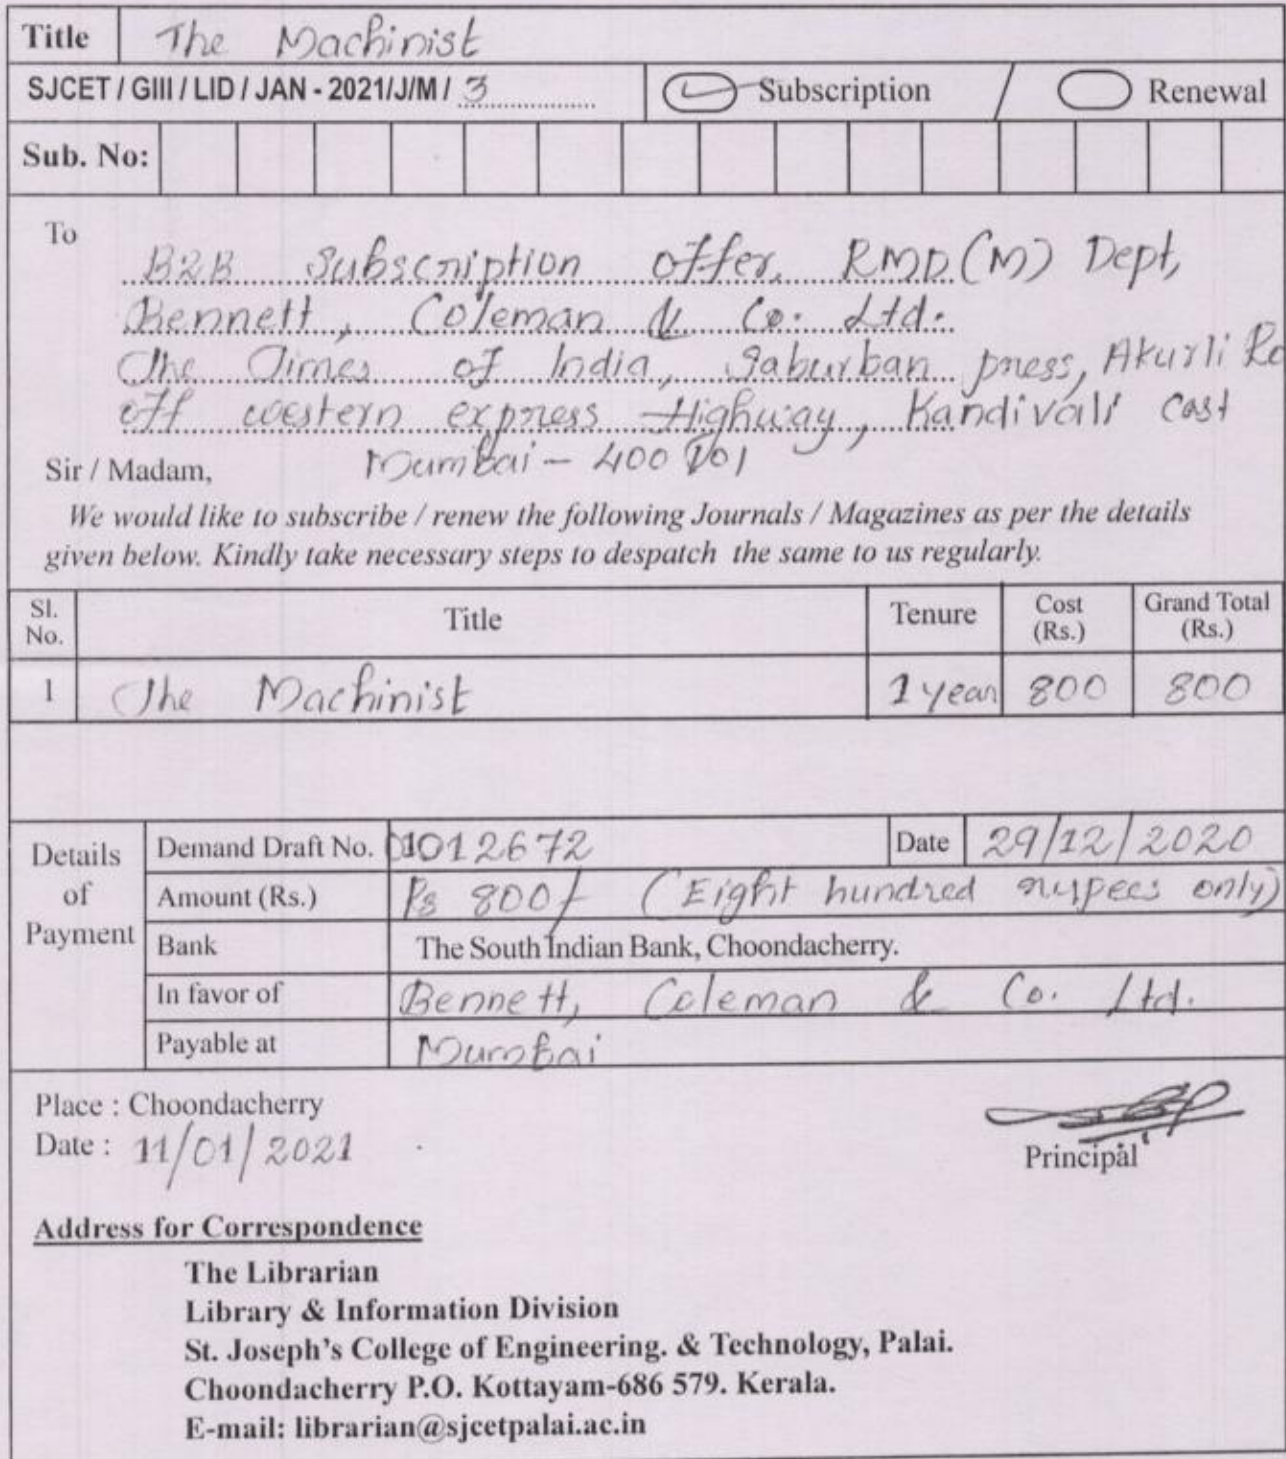 Title The Machinist
SJCET / GIII / LID / JAN - 2021/J/M / 3 Subscription / Renewal
Sub. No:
To
B2B Subscription offer, RMD (M) Dept,
Bennett, Coleman & Co. Ltd.
The Times of India, Saburban press, Akurli Ro
off western express Highway, Kandivali East
Sir / Madam, Mumbai - 400 101
We would like to subscribe / renew the following Journals / Magazines as per the details
given below. Kindly take necessary steps to despatch the same to us regularly.
Sl. No. Title Tenure Cost (Rs.) Grand Total (Rs.)
1 The Machinist 1 year 800 800
Details of Payment
Demand Draft No. 012672 Date 29/12/2020
Amount (Rs.) Rs 800/- (Eight hundred rupees only)
Bank The South Indian Bank, Choondacherry.
In favor of Bennett, Coleman & Co. Ltd.
Payable at Mumbai
Place : Choondacherry
Date : 11/01/2021
Principal
Address for Correspondence
The Librarian
Library & Information Division
St. Joseph's College of Engineering. & Technology, Palai.
Choondacherry P.O. Kottayam-686 579. Kerala.
E-mail: librarian@sjcetpalai.ac.in